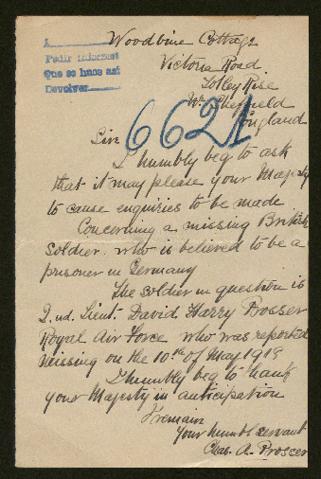 A
Pedir informes
Que se hizo así
Devolver
Woodbine Cottage
Victoria Road
Totley Rise
Nr. Sheffield
England
6621
Sire
I humbly beg to ask
that it may please your Majesty
to cause enquiries to be made
Concerning a missing British
Soldier. who is believed to be a
prisoner in Germany
The soldier in question is
2.nd. Lieut. David Harry Prosser
Royal Air Force who was reported
Missing on the 10th of May 1918
I humbly beg to thank
your Majesty in anticipation
I remain
Your humbl servant
Chas. A. Prosser